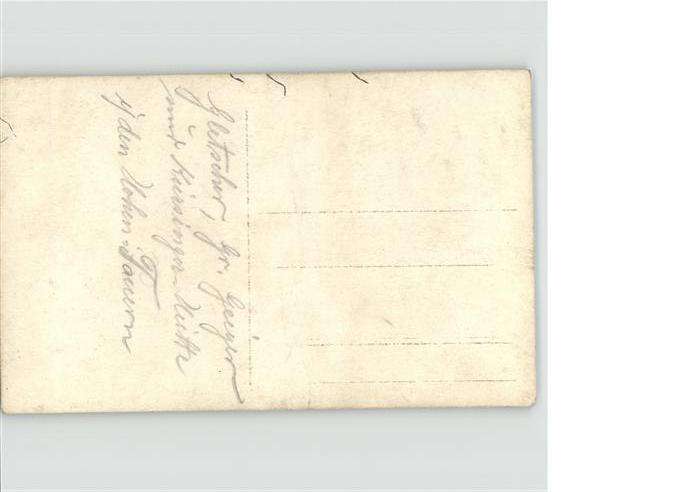 Gletscher, Gr. Geiger
und Kürsinger-Hütte
i/ den Hohen Tauern